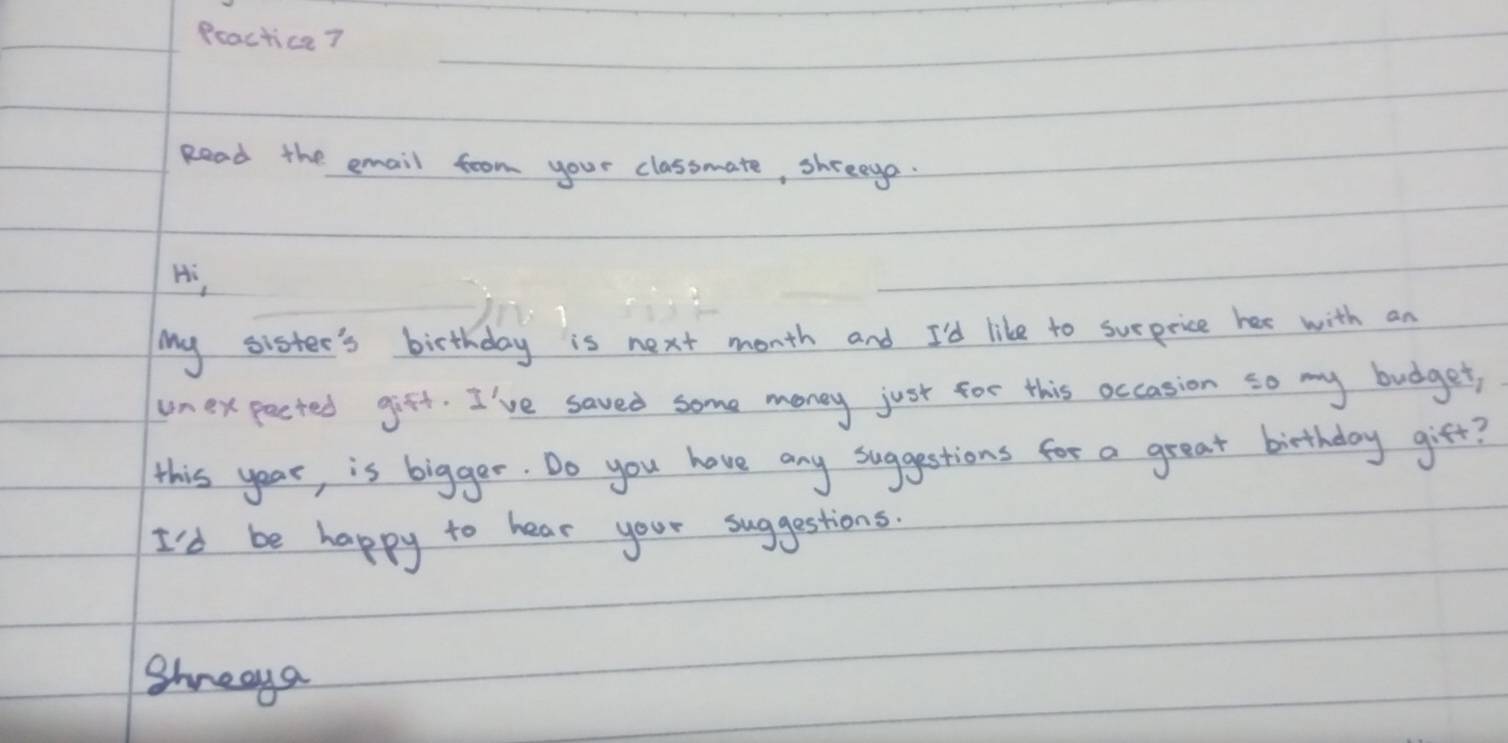 Practice 7
Read the email from your classmate, Shreeya.
Hi,
My sister's birthday is next month and I'd like to surprice her with an
unexpected gift. I've saved some money just for this occasion so my budget,
this year, is bigger. Do you have any suggestions for a great birthday gift?
I'd be happy to hear your suggestions.
Shreeya